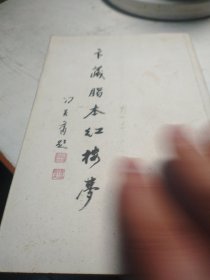 卞藏脂本红楼梦
冯其庸题